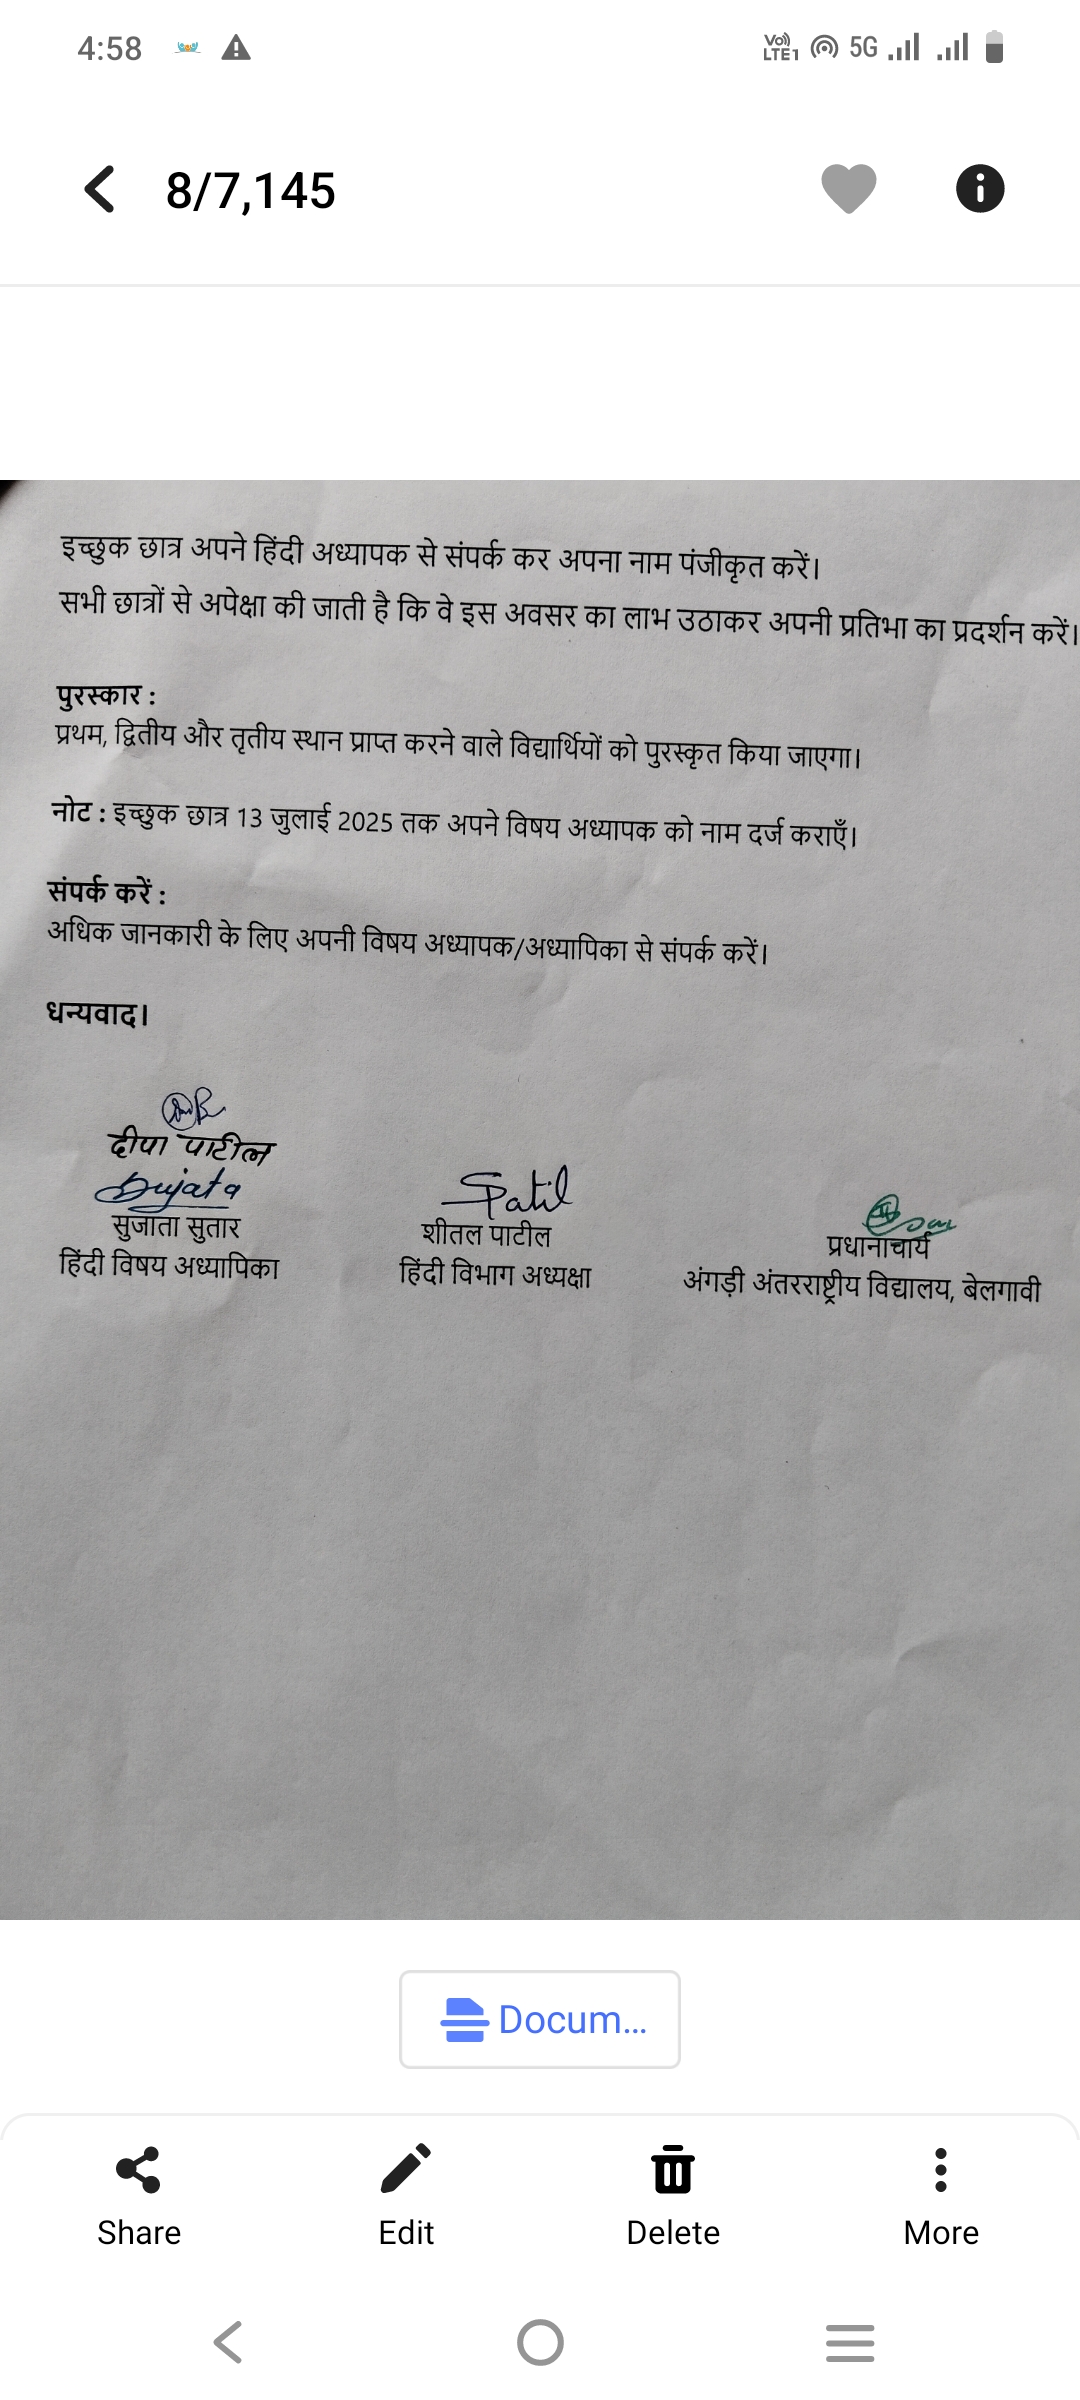 4:58
Vo)) LTE1 5G
8/7,145
इच्छुक छात्र अपने हिंदी अध्यापक से संपर्क कर अपना नाम पंजीकृत करें।
सभी छात्रों से अपेक्षा की जाती है कि वे इस अवसर का लाभ उठाकर अपनी प्रतिभा का प्रदर्शन करें।
पुरस्कार :
प्रथम, द्वितीय और तृतीय स्थान प्राप्त करने वाले विद्यार्थियों को पुरस्कृत किया जाएगा।
नोट : इच्छुक छात्र 13 जुलाई 2025 तक अपने विषय अध्यापक को नाम दर्ज कराएँ।
संपर्क करें :
अधिक जानकारी के लिए अपनी विषय अध्यापक/अध्यापिका से संपर्क करें।
धन्यवाद।
दीपा पाटील
Sujata Spatil
सुजाता सुतार शीतल पाटील प्रधानाचार्य
हिंदी विषय अध्यापिका हिंदी विभाग अध्यक्षा अंगड़ी अंतरराष्ट्रीय विद्यालय, बेलगावी
Docum...
Share Edit Delete More